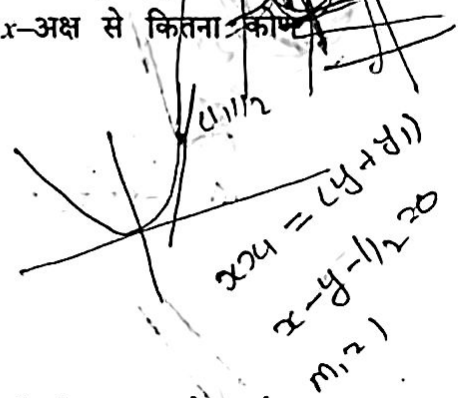 x–अक्ष से कितना कोण
(1,1/2
xx1 = (y+y1)
x-y-1/2=0
m,=1